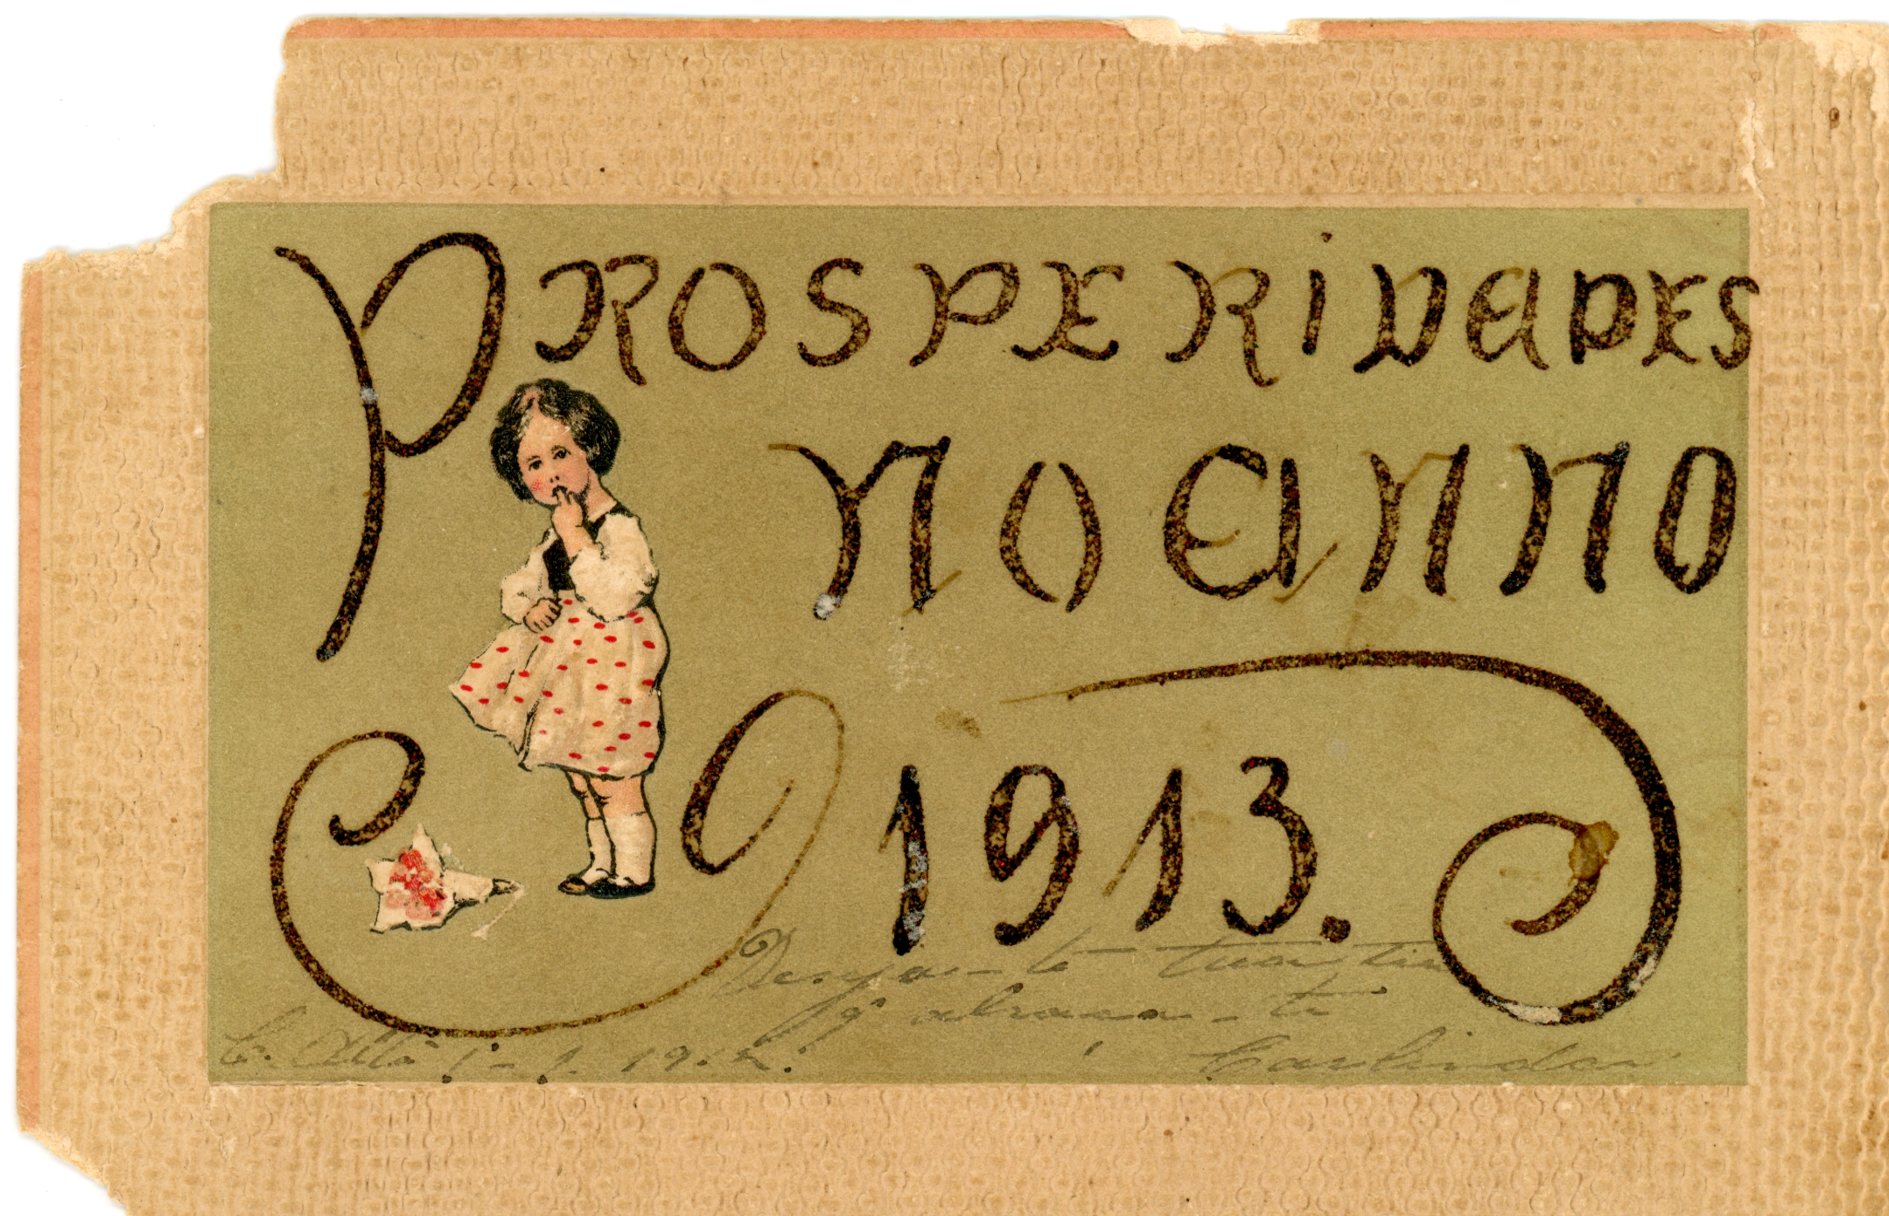 PROSPERIDADES
NO ANNO
1913.
te tua tia
q abraça-te
C. Alta 1-1-191
Carlinda